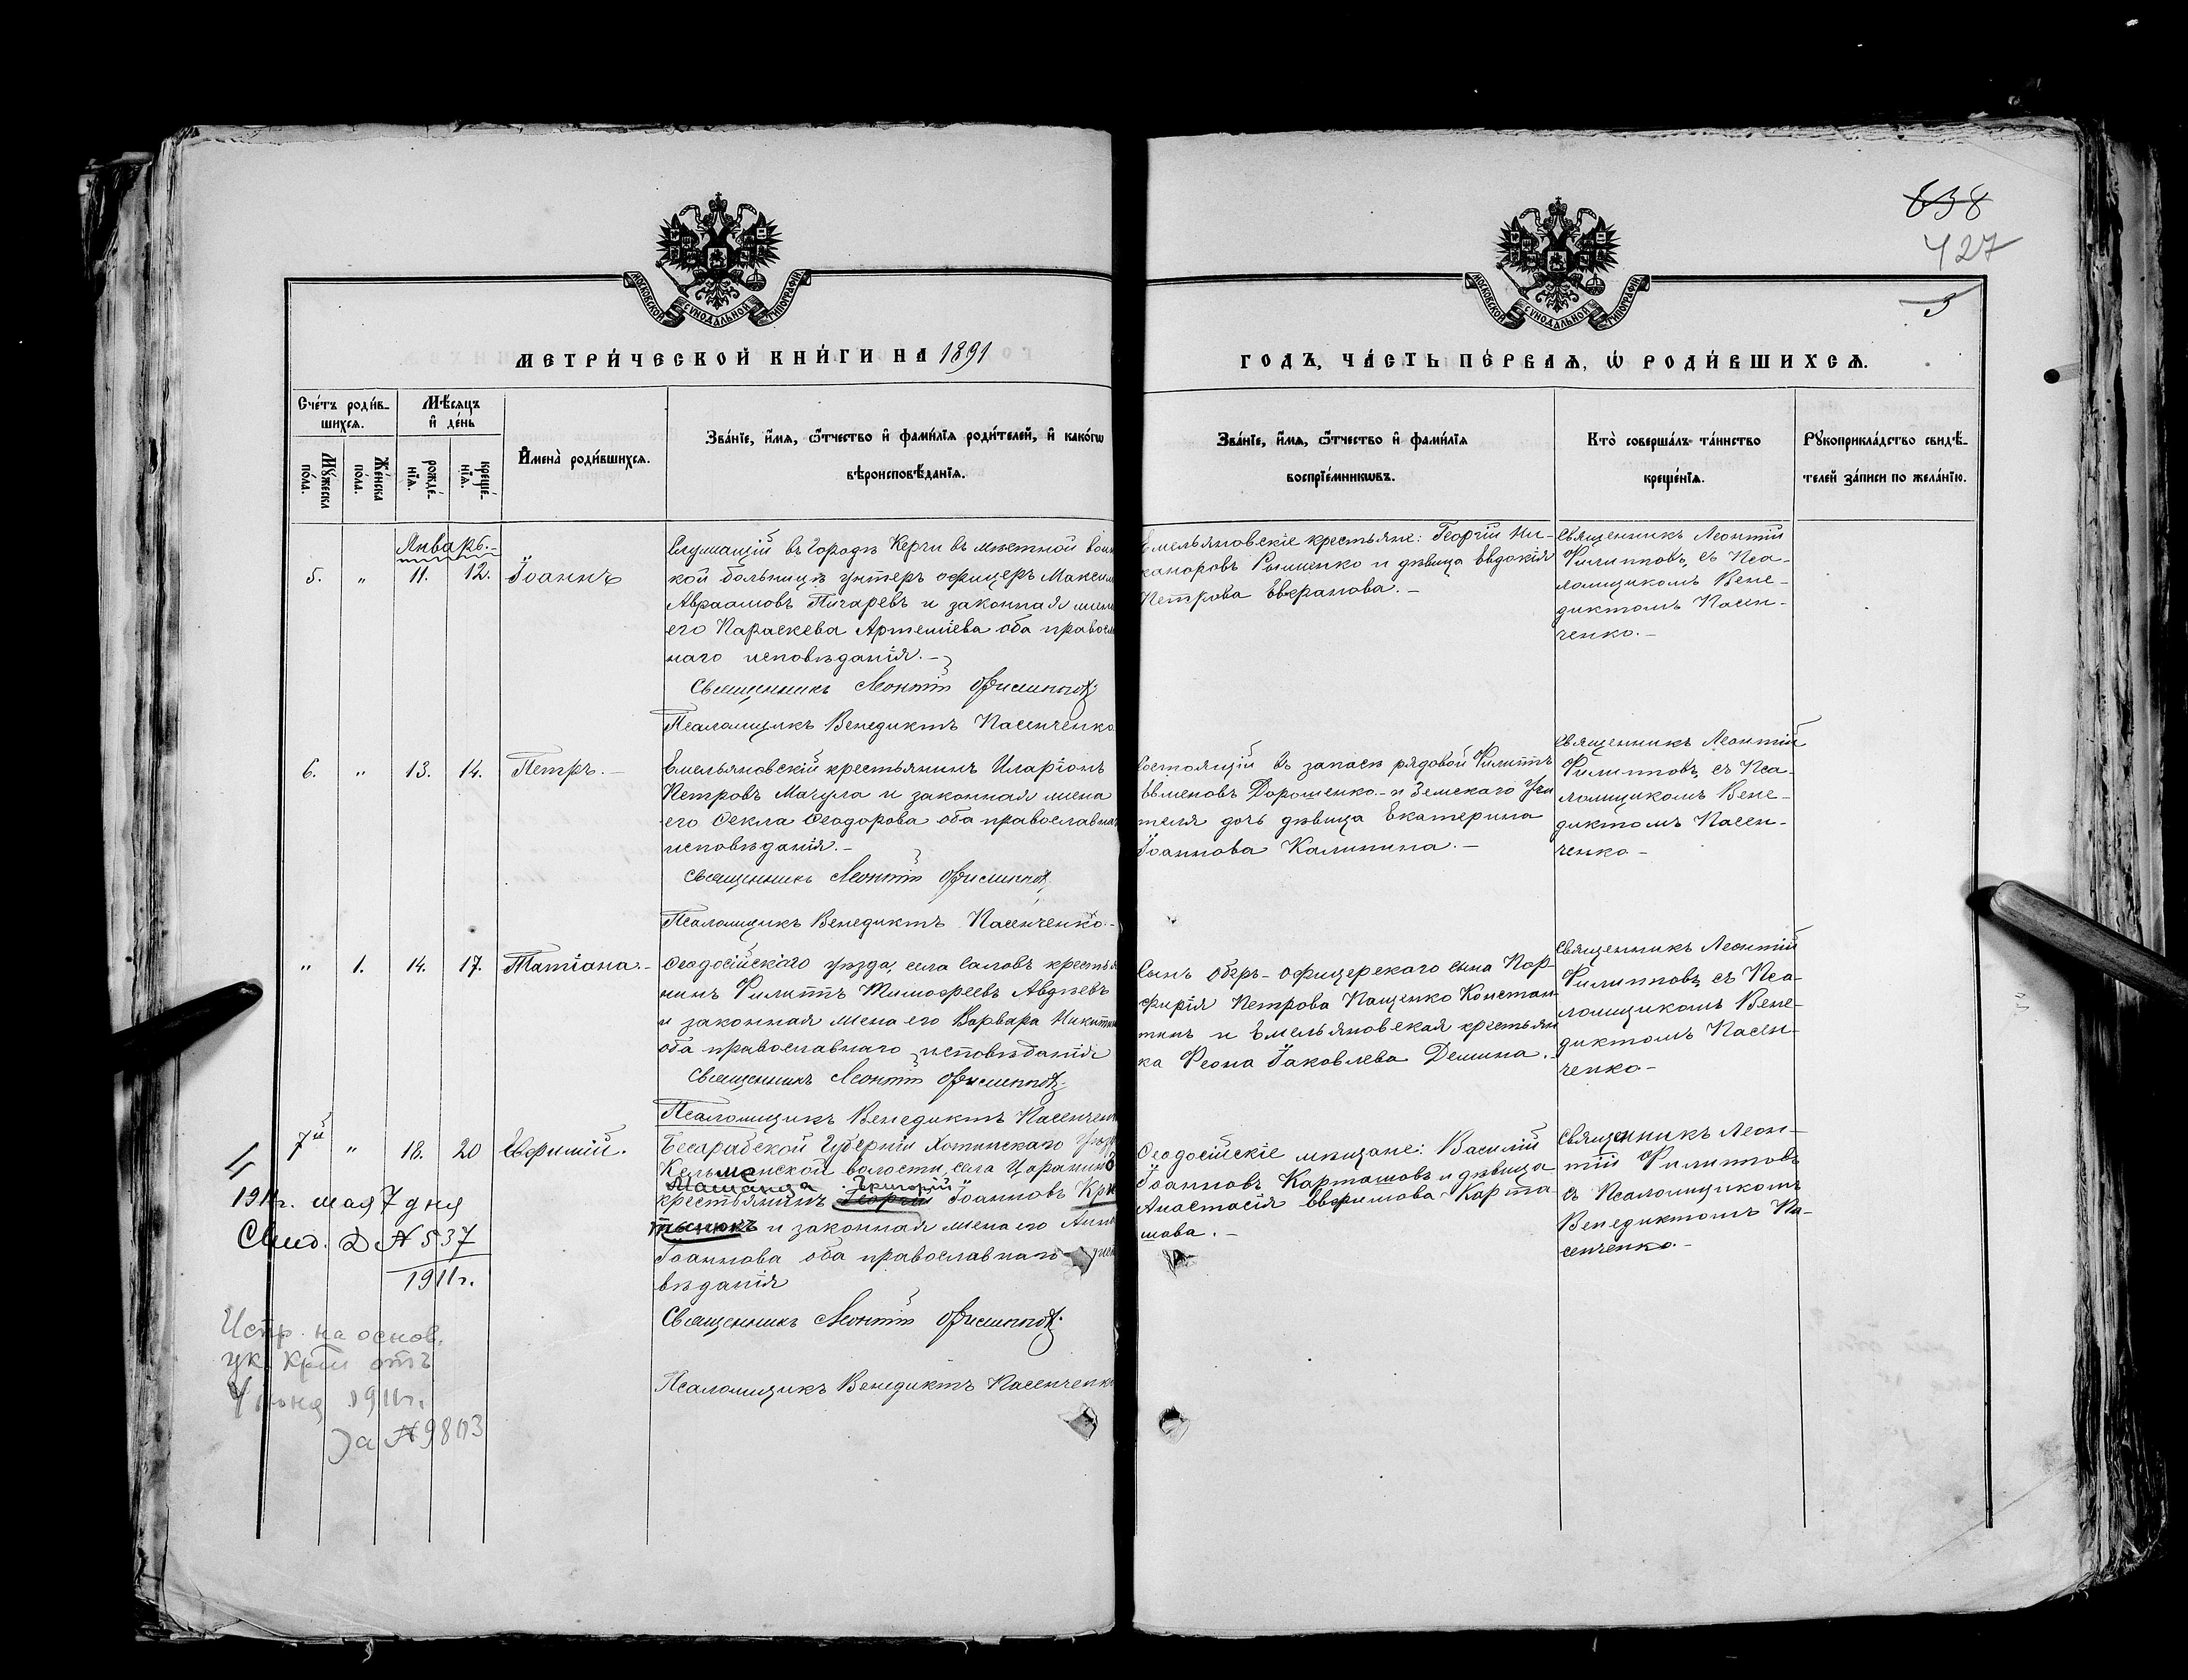 638
427
3
МОСКОВСКОЙ СѴНОДАЛЬНОЙ ТИПОГРАФІИ
МОСКОВСКОЙ СѴНОДАЛЬНОЙ ТИПОГРАФІИ
МЕТРИ́ЧЕСКОЙ КНИ́ГИ НА 1891
ГОДЪ, ЧА́СТЬ ПЕ́РВАѦ, Ѡ РОДИ́ВШИХСѦ.
Сче́тъ роди́в-
шихся.
Мѣ́сяцъ
и҆ де́нь
Му́жеска
по́ла.
Же́нска
по́ла.
рожде́-
нїѧ.
креще́-
нїѧ.
И҆мена̀ роди́вшихся.
Зва́нїе, и҆́мѧ, ѻ҆́тчество и҆ фами́лїѧ роди́телей, и҆ како́гѡ
вѣроисповѣ́данїѧ.
Зва́нїе, и҆́мѧ, ѻ҆́тчество и҆ фами́лїѧ
воспрїе́мникѡвъ.
Кто̀ соверша́лъ та́инство
креще́нїѧ.
Рукоприкла́дство свидѣ́-
телей за́писи по жела́нїю.
Январь.
5. " 11. 12. Іоаннъ
Служащій въ городѣ Керчи въ мѣстной воин
кой больницѣ унтеръ офицеръ Максим
Авраамовъ Пичаревъ и законная жен
его Параскева Артеміева оба правосл
наго исповѣданія.
Священникъ Леонтій Филипповъ
Псаломщикъ Венедиктъ Пасенченко
Емельяновскіе крестьяне: Георгій Ни-
каноровъ и дѣвица Евдокія
Петрова
Священникъ Леонтій
Филипповъ, съ Пса-
ломщикомъ Вене-
диктомъ Пасен-
ченко.
6. " 13. 14. Петръ.
Емельяновскій крестьянинъ Иларіонъ
Петровъ Мачула и законная жена
его Ѳекла Ѳеодорова оба православна
исповѣданія.
Священникъ Леонтій Филипповъ
Псаломщикъ Венедиктъ Пасенченко.
Состоящій въ запасѣ рядовой Филиппъ
Евменовъ Дорошенко и Земскаго Учи
теля дочь дѣвица Екатерина
Іоаннова Калинина.
Священникъ Леонтій
Филипповъ, съ Пса-
ломщикомъ Вене-
диктомъ Пасен-
ченко
" 1. 14. 17. Татіана.
Ѳеодосійскаго уѣзда, села Саловъ крестья
нинъ Филиппъ Тимофеевъ Авдѣевъ
и законная жена его Варвара Никитин
оба православнаго исповѣданія
Священникъ Леонтій Филипповъ
Псаломщикъ Венедиктъ Пасенчен
Сынъ Оберъ-офицерскаго сына Пор-
фирія Петрова Пащенко Констан
тинъ и Емельяновская крестьян
ка Іаковлева Демина.
Священникъ Леонтій
Филипповъ, съ Пса-
ломщикомъ Вене-
диктомъ Пасен-
ченко
7й " 18. 20 Евфимій.
Бесарабской Губерніи Хотинскаго Уѣзд
Кельменской волости, села
Григорій
крестьянинъ Георгій Іоанновъ
и законная жена его Анн
Іоаннова оба православнаго испо
вѣданія
Священникъ Леонтій Филипповъ
Псаломщикъ Венедиктъ Пасенченк
Ѳеодосійскіе мѣщане: Василій
Іоанновъ Карташовъ и дѣвица
Анастасія Евфимова Карта
шова.
Священникъ Леон-
тій Филипповъ
съ Псаломщикомъ
Венедиктомъ Па-
сенченко.
1911г. мая 7 дня
Свид. № 537
1911г.
Испр. на основ.
ук. отъ
1911г.
за № 9803